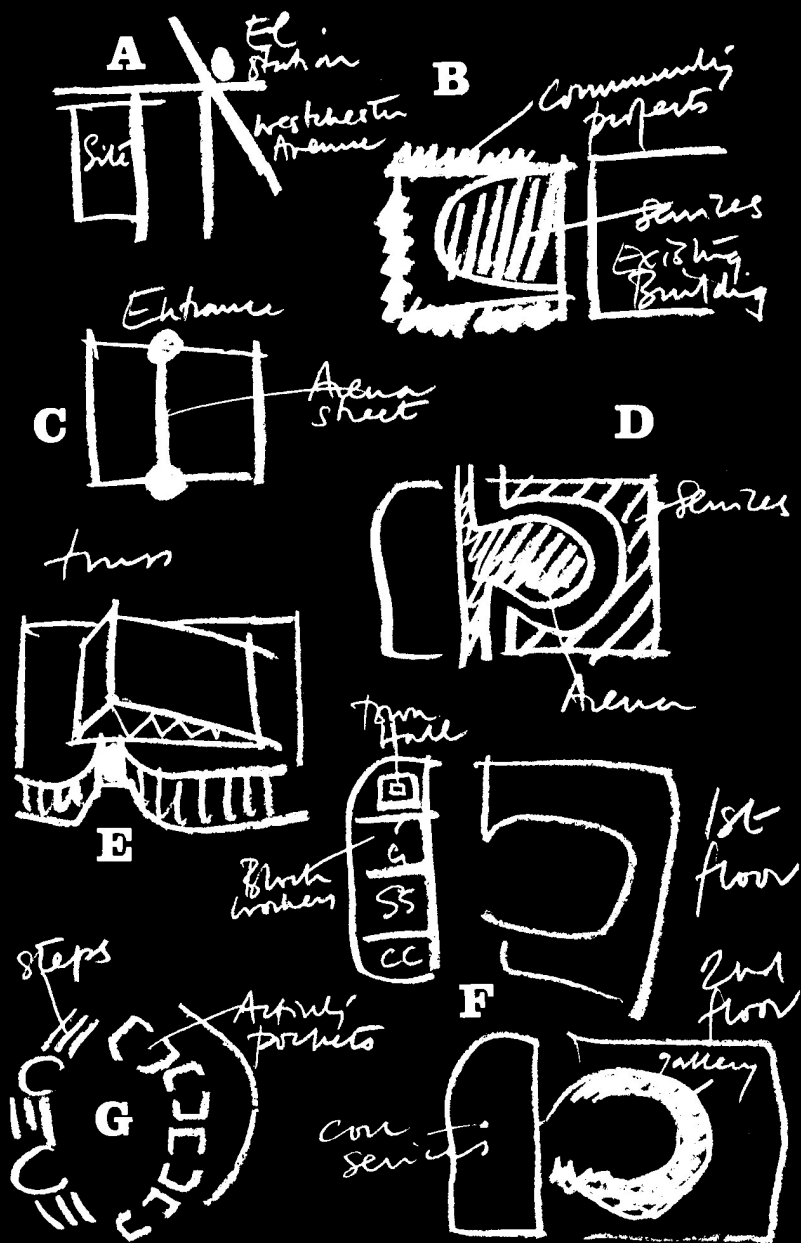 A
El
station
Westchester
Avenue
Site
B
Community
projects
Services
Existing
Building
C
Entrance
Arena
street
D
Services
Arena
truss
E
Town
Hall
Block
workers
C
SS
CC
1st
floor
F
2nd
floor
gallery
core
services
G
steps
Activity
pockets